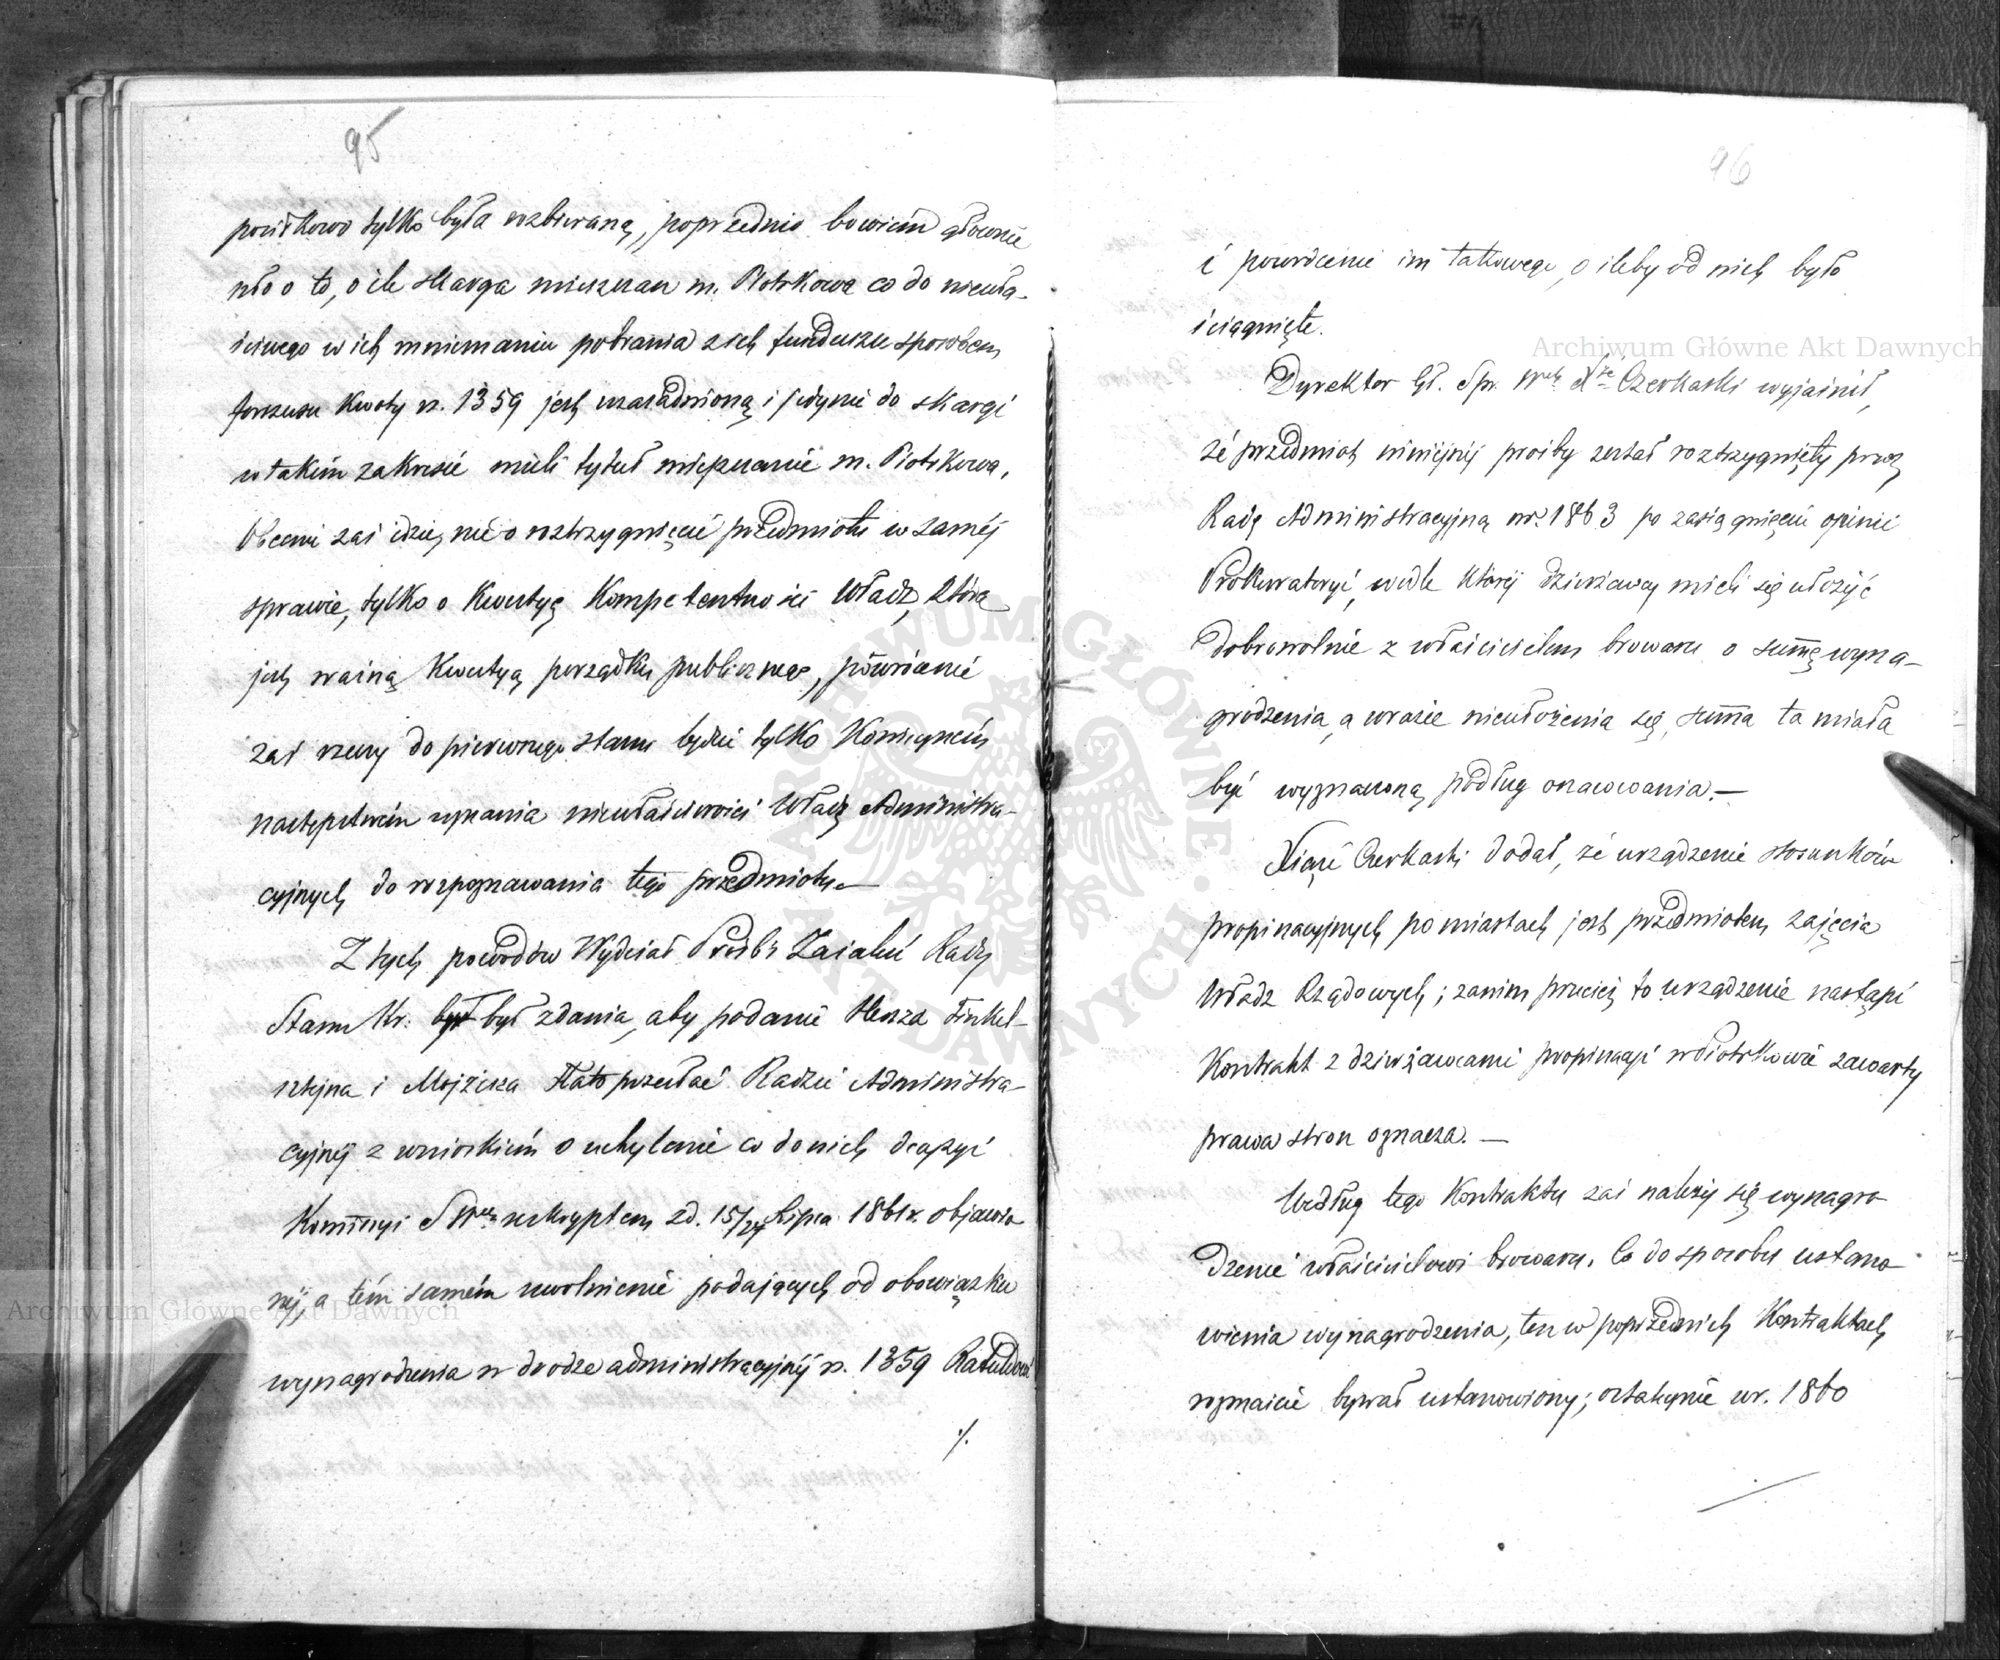 95
tylko była rozbieraną, poprzednio bowiem głównie
szło o to, o ile skarga mieszkan m. Piotrkowa co do niewła-
ściwego w ich mniemaniu pobrania z ich funduszu sposobem
forszusu kwoty rs. 1359 jest uzasadnioną i jedynie do skargi
w takim zakresie mieli tytuł mieszkanie m. Piotrkowa,
Obecnie zaś idzie, nie o roztrzygnięcie przedmiotu w saméj
sprawie, tylko o kwestyę kompetentności Władz, która
jest ważną kwestyą porządku publicznego, powrócenie
zaś rzeczy do pierwszego stanu będzie tylko koniecznem
następstwém uznania niewłaściwości Władz Administra-
cyjnych do rozpoznawania tego przedmiotu.—
Z tych powodów Wydział Próśb i Zażaleń Rady
Stanu Kr. był był zdania, aby podanie Henza Finkel-
sztejna i Mojżesza Płato przesłać Radzie Administra-
cyjnéj z wnioskiem o uchylenie co do nich decyzyi
Kommyi S Wch reskryptem z d. 15/27 Lipca 1861 r. objawio
néj, a tém samém uwolnienie podających od obowiązku
wynagrodzenia w drodze administracyjnéj rs. 1359
./.
96
i powrócenie im takowego, o ileby od nich było
ściągnięte.
Dyrektor Gł. Spr. Wch Xże Czerkaski wyjaśnił,
że przedmiot niniejszéj prośby został roztrzygnięty przez
Radę Administracyjną w r. 1863 po zasiągnięciu opinii
Prokuratoryi, wedle któréj dzierżawcy mieli się ułożyć
dobrowolnie z właścicielem browaru o summę wyna-
grodzenia, a w razie nieułożenia się, summa ta miała
być wyznaczoną podług oszacowania.—
Xiąże Czerkaski dodał, że urządzenie stosunków
propinacyjnych po miastach jest przedmiotem zajęcia
Władz Rządowych; zanim przecież to urządzenie nastąpi
Kontrakt z dzierżawcami propinacyi w Piotrkowie zawarty
prawa stron oznacza.—
Według tego Kontraktu zaś należy się wynagro
dzenie właścicielowi browaru. Co do sposobu ustano
wienia wynagrodzenia, ten w poprzednich Kontraktach
rozmaicie bywał ustanowiony; ostatecznie w r. 1860